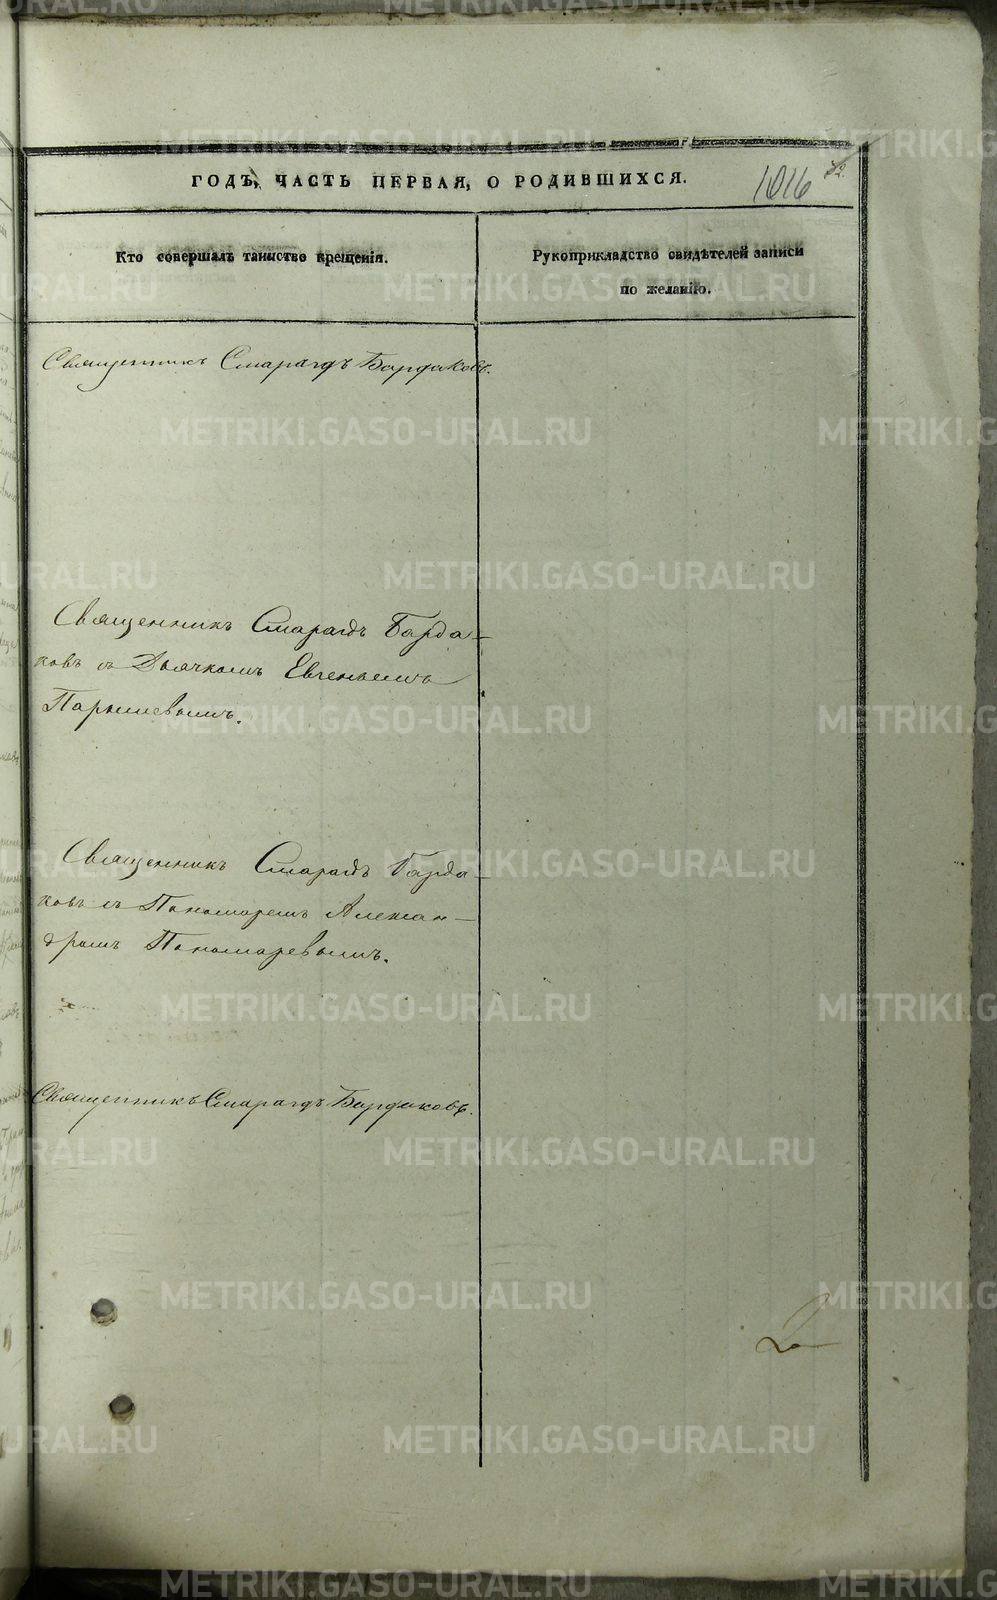 ГОДЪ, ЧАСТЬ ПЕРВАЯ, О РОДИВШИХСЯ.
1016
Кто совершалъ таинство крещенія.
Рукоприкладство свидѣтелей записи
по желанію.
Священникъ Смарагдъ Бардаковъ.
Священникъ Смарагдъ Барда-
ковъ съ Дьячкомъ Евгеньемъ
Парышевымъ.
Священникъ Смарагдъ Барда-
ковъ съ Пономаремъ Алексан-
дромъ Пономаревымъ.
Священникъ Смарагдъ Бардаковъ.
2
METRIKI.GASO-URAL.RU